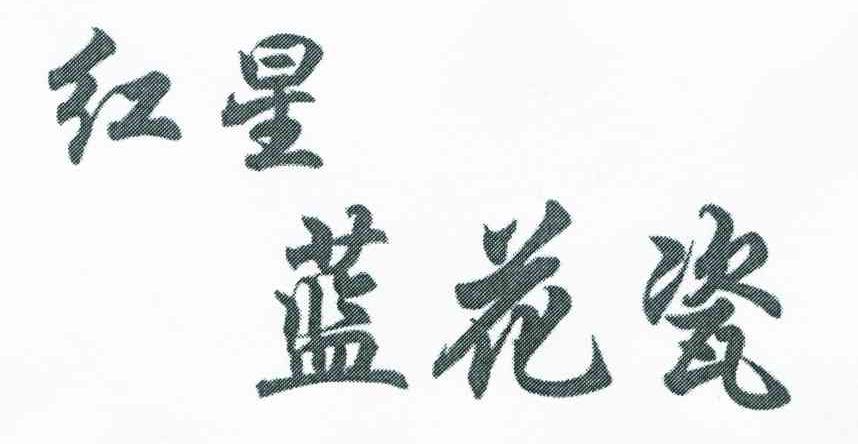 红星
蓝花瓷